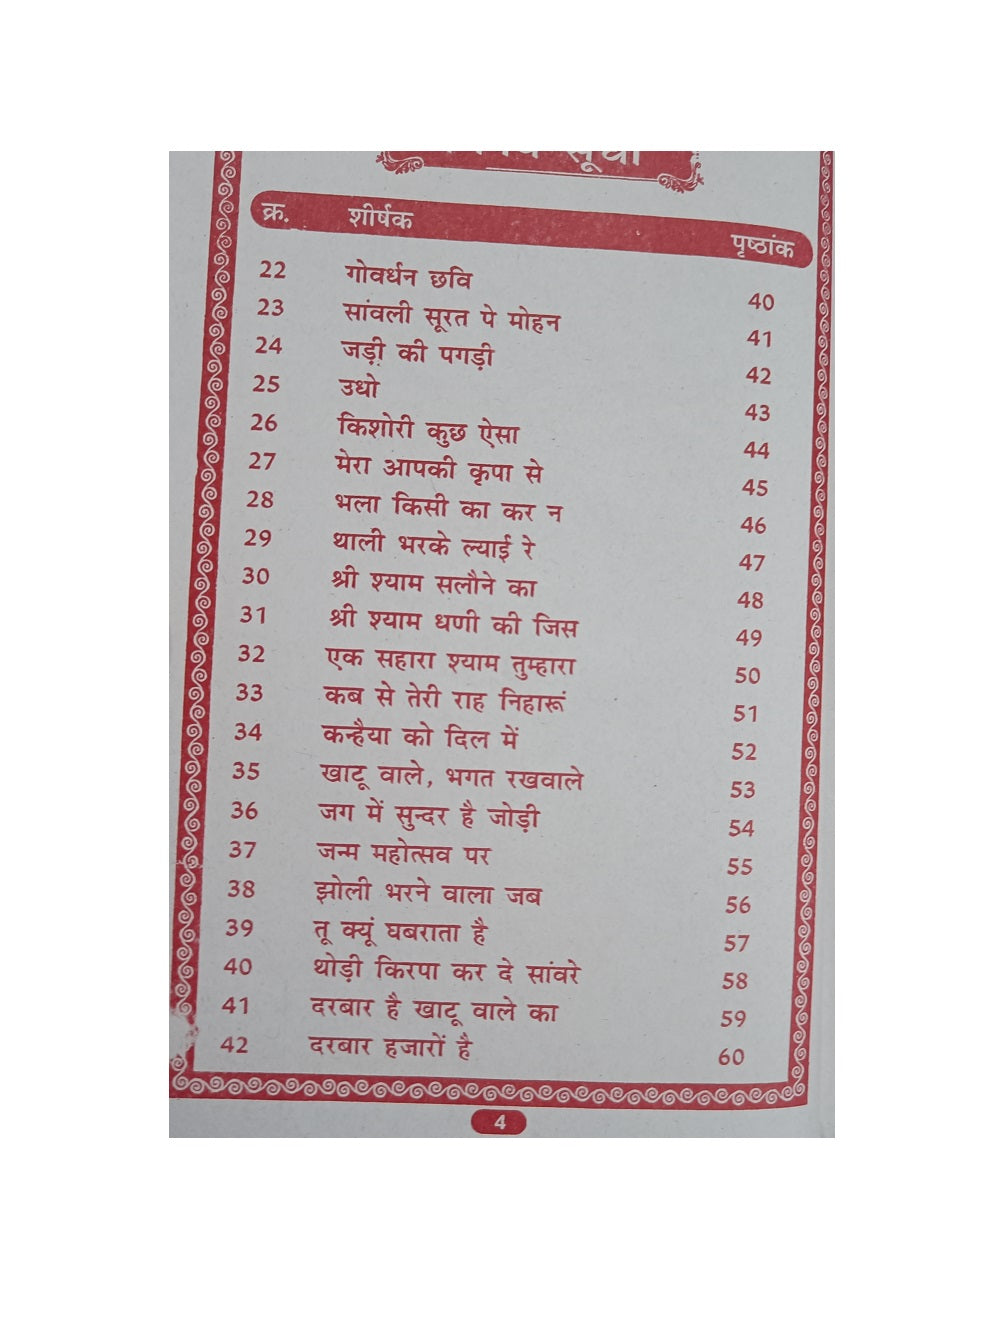 सूची
क्र. शीर्षक पृष्ठांक
22 गोवर्धन छवि 40
23 सांवली सूरत पे मोहन 41
24 जड़ी की पगड़ी 42
25 उधो 43
26 किशोरी कुछ ऐसा 44
27 मेरा आपकी कृपा से 45
28 भला किसी का कर न 46
29 थाली भरके ल्याई रे 47
30 श्री श्याम सलौने का 48
31 श्री श्याम धणी की जिस 49
32 एक सहारा श्याम तुम्हारा 50
33 कब से तेरी राह निहारूं 51
34 कन्हैया को दिल में 52
35 खाटू वाले, भगत रखवाले 53
36 जग में सुन्दर है जोड़ी 54
37 जन्म महोत्सव पर 55
38 झोली भरने वाला जब 56
39 तू क्यूं घबराता है 57
40 थोड़ी किरपा कर दे सांवरे 58
41 दरबार है खाटू वाले का 59
42 दरबार हजारों है 60
4